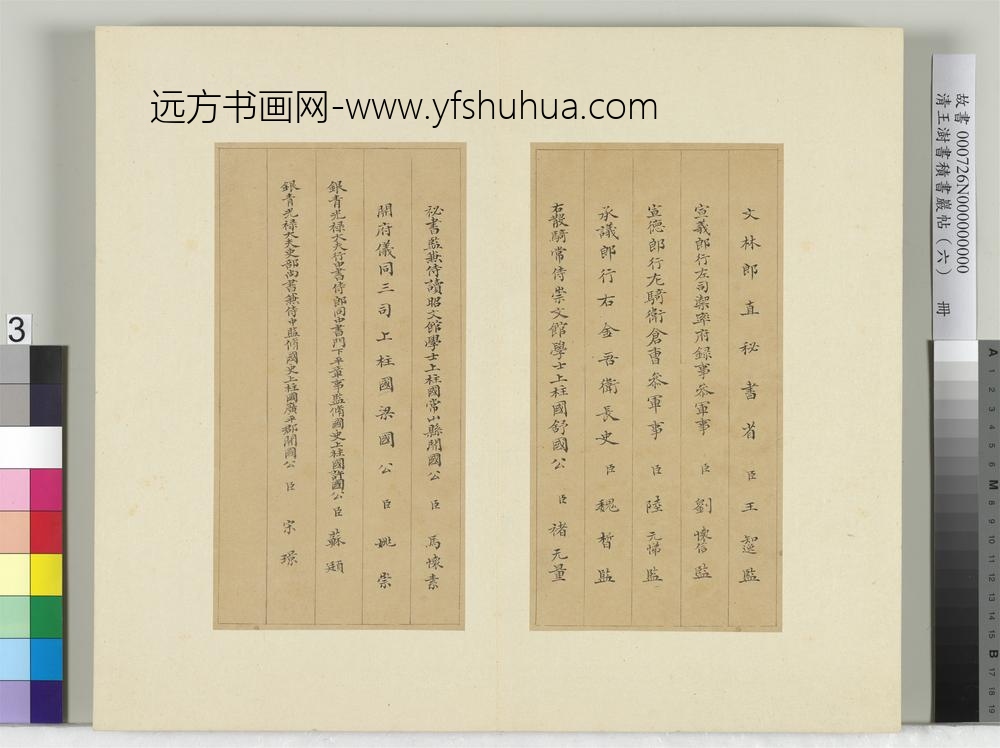 远方书画网-www.yfshuhua.com
文林郎直秘書省 臣 王知逸監
宣義郎行左司禦率府録事叅軍事 臣 劉懷信監
宣德郎行左騎衛倉曹叅軍事 臣 陸元悌監
承議郎行右金吾衛長史 臣 魏晢監
右散騎常侍崇文館學士上柱國舒國公 臣 褚无量
祕書監兼侍讀昭文館學士上柱國常山縣開國公 臣 馬懷素
開府儀同三司上柱國梁國公 臣 姚崇
銀青光祿大夫行中書侍郎同中書門下平章事監脩國史上柱國許國公 臣 蘇頲
銀青光祿大夫吏部尚書兼侍中監脩國史上柱國廣平郡開國公 臣 宋璟
故書 000726N000000000
清王澍書積書巖帖（六） 冊
3
A 1 2 3 4 5 6 M 8 9 10 11 12 13 14 15 B 17 18 19